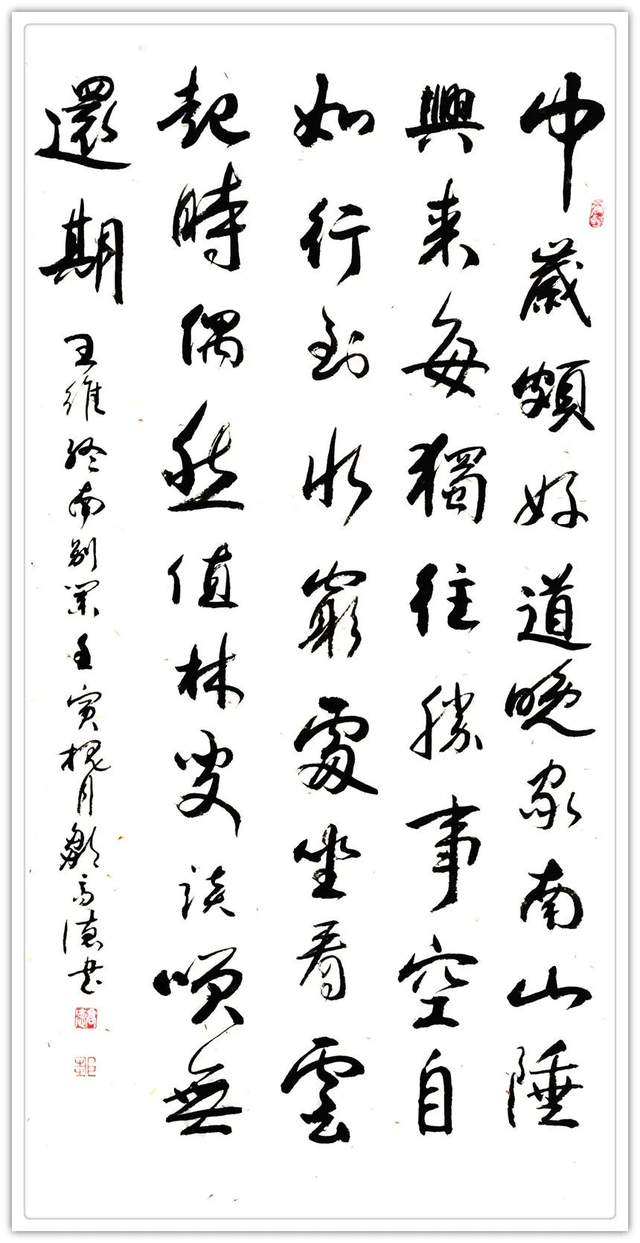 中歲頗好道晚家南山陲
興来每獨往勝事空自
知行到水窮處坐看雲
起時偶然值林叟談咲無
還期
王維終南別業壬寅槐月高德書